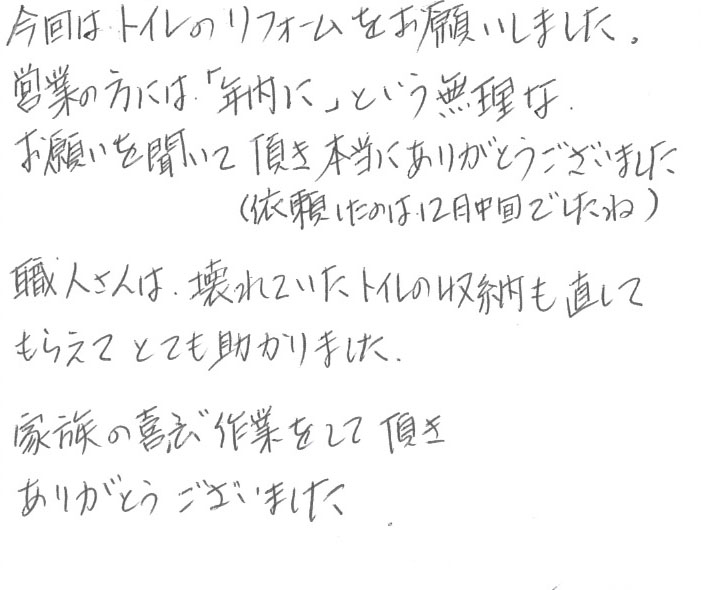 今回はトイレのリフォームをお願いしました。
営業の方には、「年内に」という無理な
お願いを聞いて頂き本当にありがとうございました
(依頼したのは、12月中旬でしたね)
職人さんは、壊れていたトイレの収納も直して
もらえてとても助かりました.
家族の喜ぶ作業をして頂き
ありがとうございました